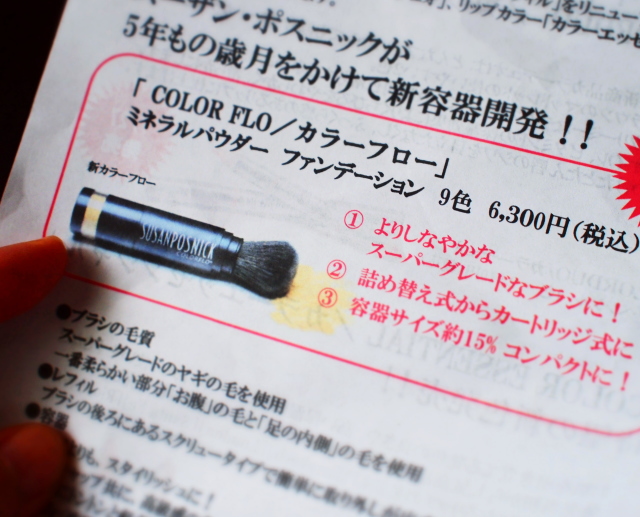 リップカラー「カラーエッセ
ーザン・ポスニックが
5年もの歳月をかけて新容器開発!!
「 COLOR FLO/カラーフロー」
ミネラルパウダー ファンデーション 9色 6,300円(税込)
新カラーフロー
SUSAN POSNICK
① よりしなやかな
スーパーグレードなブラシに!
② 詰め替え式からカートリッジ式に
③ 容器サイズ約15%コンパクトに!
●ブラシの毛質
スーパーグレードのヤギの毛を使用
一番柔らかい部分「お腹」の毛と「足の内側」の毛を使用
●レフィル
ブラシの後ろにあるスクリュータイプで簡単に取り外し
●容器
りも、スタイリッシュに!